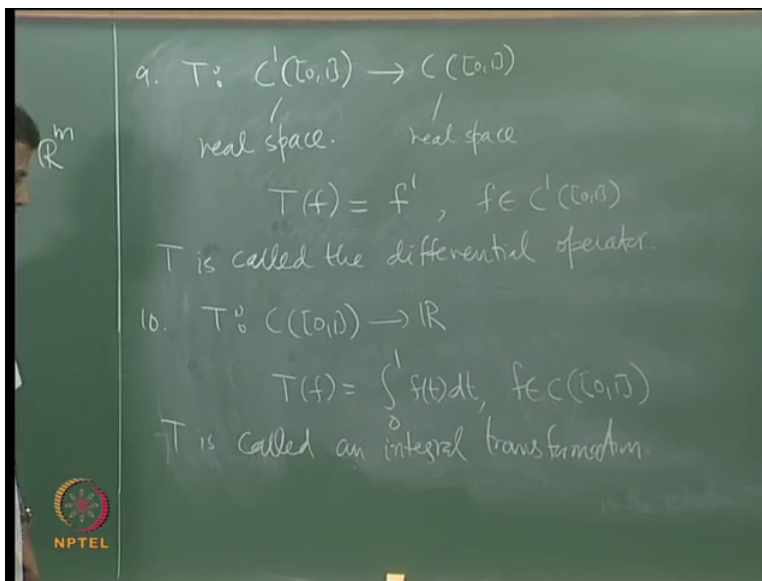 ℝᵐ
9. T: C'([0,1]) → C([0,1])
real space. real space
T(f) = f', f ∈ C'([0,1])
T is called the differential operator.
10. T: C([0,1]) → ℝ
T(f) = ∫₀¹ f(t)dt, f ∈ C([0,1])
T is called an integral transformation.
NPTEL